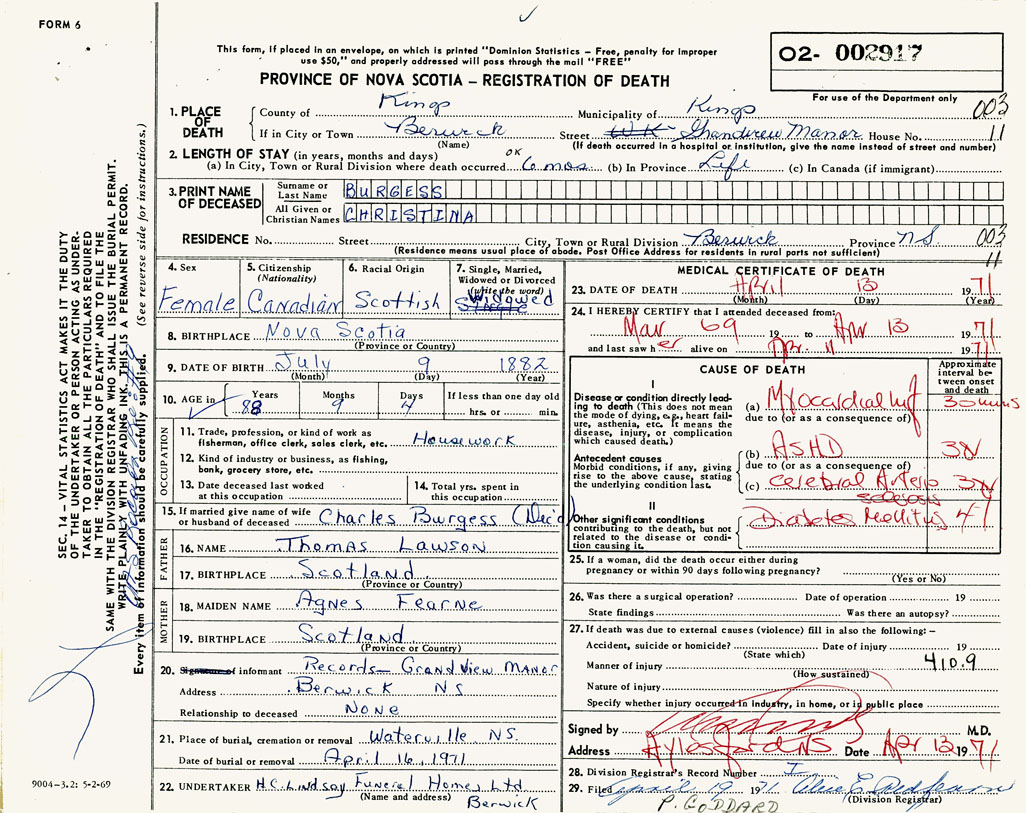 FORM 6
This form, if placed in an envelope, on which is printed "Dominion Statistics – Free, penalty for improper
use $50," and properly addressed will pass through the mail "FREE"
O2- 002917
For use of the Department only
PROVINCE OF NOVA SCOTIA – REGISTRATION OF DEATH
1. PLACE OF DEATH
County of Kings Municipality of Kings 003
If in City or Town Berwick Street Grandview Manor House No. 11
(Name) (If death occurred in a hospital or institution, give the name instead of street and number)
2. LENGTH OF STAY (in years, months and days) OK
(a) In City, Town or Rural Division where death occurred 6 mos. (b) In Province Life (c) In Canada (if immigrant)
3. PRINT NAME OF DECEASED
Surname or Last Name BURGESS
All Given or Christian Names CHRISTINA
RESIDENCE No. Street City, Town or Rural Division Berwick Province NS. 003
(Residence means usual place of abode. Post Office Address for residents in rural parts not sufficient) 11
4. Sex Female
5. Citizenship (Nationality) Canadian
6. Racial Origin Scottish
7. Single, Married, Widowed or Divorced (write the word) Widowed Single
8. BIRTHPLACE Nova Scotia
(Province or Country)
9. DATE OF BIRTH July 9 1882
(Month) (Day) (Year)
10. AGE in Years 88 Months 9 Days 4 If less than one day old hrs. or min.
OCCUPATION
11. Trade, profession, or kind of work as
fishermen, office clerk, sales clerk, etc. Housework
12. Kind of industry or business, as fishing,
bank, grocery store, etc.
13. Date deceased last worked at this occupation
14. Total yrs. spent in this occupation
15. If married give name of wife
or husband of deceased Charles Burgess (Dec'd)
FATHER
16. NAME Thomas Lawson
17. BIRTHPLACE Scotland
(Province or Country)
MOTHER
18. MAIDEN NAME Agnes Fearne
19. BIRTHPLACE Scotland
(Province or Country)
20. Signature of informant Records – Grandview Manor
Address Berwick NS
Relationship to deceased None
21. Place of burial, cremation or removal Waterville NS.
Date of burial or removal April 16, 1971
22. UNDERTAKER H.C. Lindsay Funeral Homes Ltd
(Name and address) Berwick
MEDICAL CERTIFICATE OF DEATH
23. DATE OF DEATH April 13 1971
(Month) (Day) (Year)
24. I HEREBY CERTIFY that I attended deceased from:
Mar 69 19 to Apr 13 1971
and last saw her alive on Apr. 11 1971
CAUSE OF DEATH
Approximate interval between onset and death
I
Disease or condition directly leading to death (This does not
mean the mode of dying, e.g., heart failure, asthenia, etc. It means the
disease, injury, or complication
which caused death.)
(a) Myocardial Inf 30 mins
due to (or as a consequence of)
Antecedent causes
Morbid conditions, if any, giving
rise to the above cause, stating
the underlying condition last.
(b) ASHD 3y
due to (or as a consequence of)
(c) Cerebral Arterio sclerosis 3y
II
Other significant conditions
contributing to the death, but not
related to the disease or condition causing it.
Diabetes Mellitus 4y
25. If a woman, did the death occur either during
pregnancy or within 90 days following pregnancy?
(Yes or No)
26. Was there a surgical operation? Date of operation 19
State findings Was there an autopsy?
27. If death was due to external causes (violence) fill in also the following: –
Accident, suicide or homicide? Date of injury 19
(State which)
Manner of injury 410.9
(How sustained)
Nature of injury
Specify whether injury occurred in industry, in home, or in public place
Signed by M.D.
Address Aylesford NS Date Apr 13 1971
28. Division Registrar's Record Number
29. Filed April 19 1971
(Division Registrar)
P. GODDARD
SEC. 14 – VITAL STATISTICS ACT MAKES IT THE DUTY
OF THE UNDERTAKER OR PERSON ACTING AS UNDER-
TAKER TO OBTAIN ALL THE PARTICULARS REQUIRED
IN THE "REGISTRATION OF DEATH" AND TO FILE THE
SAME WITH THE DIVISION REGISTRAR WHO SHALL ISSUE THE BURIAL PERMIT.
WRITE PLAINLY WITH UNFADING INK. THIS IS A PERMANENT RECORD.
Every item of information should be carefully supplied. (See reverse side for instructions.)
9004-3.2: 5-2-69